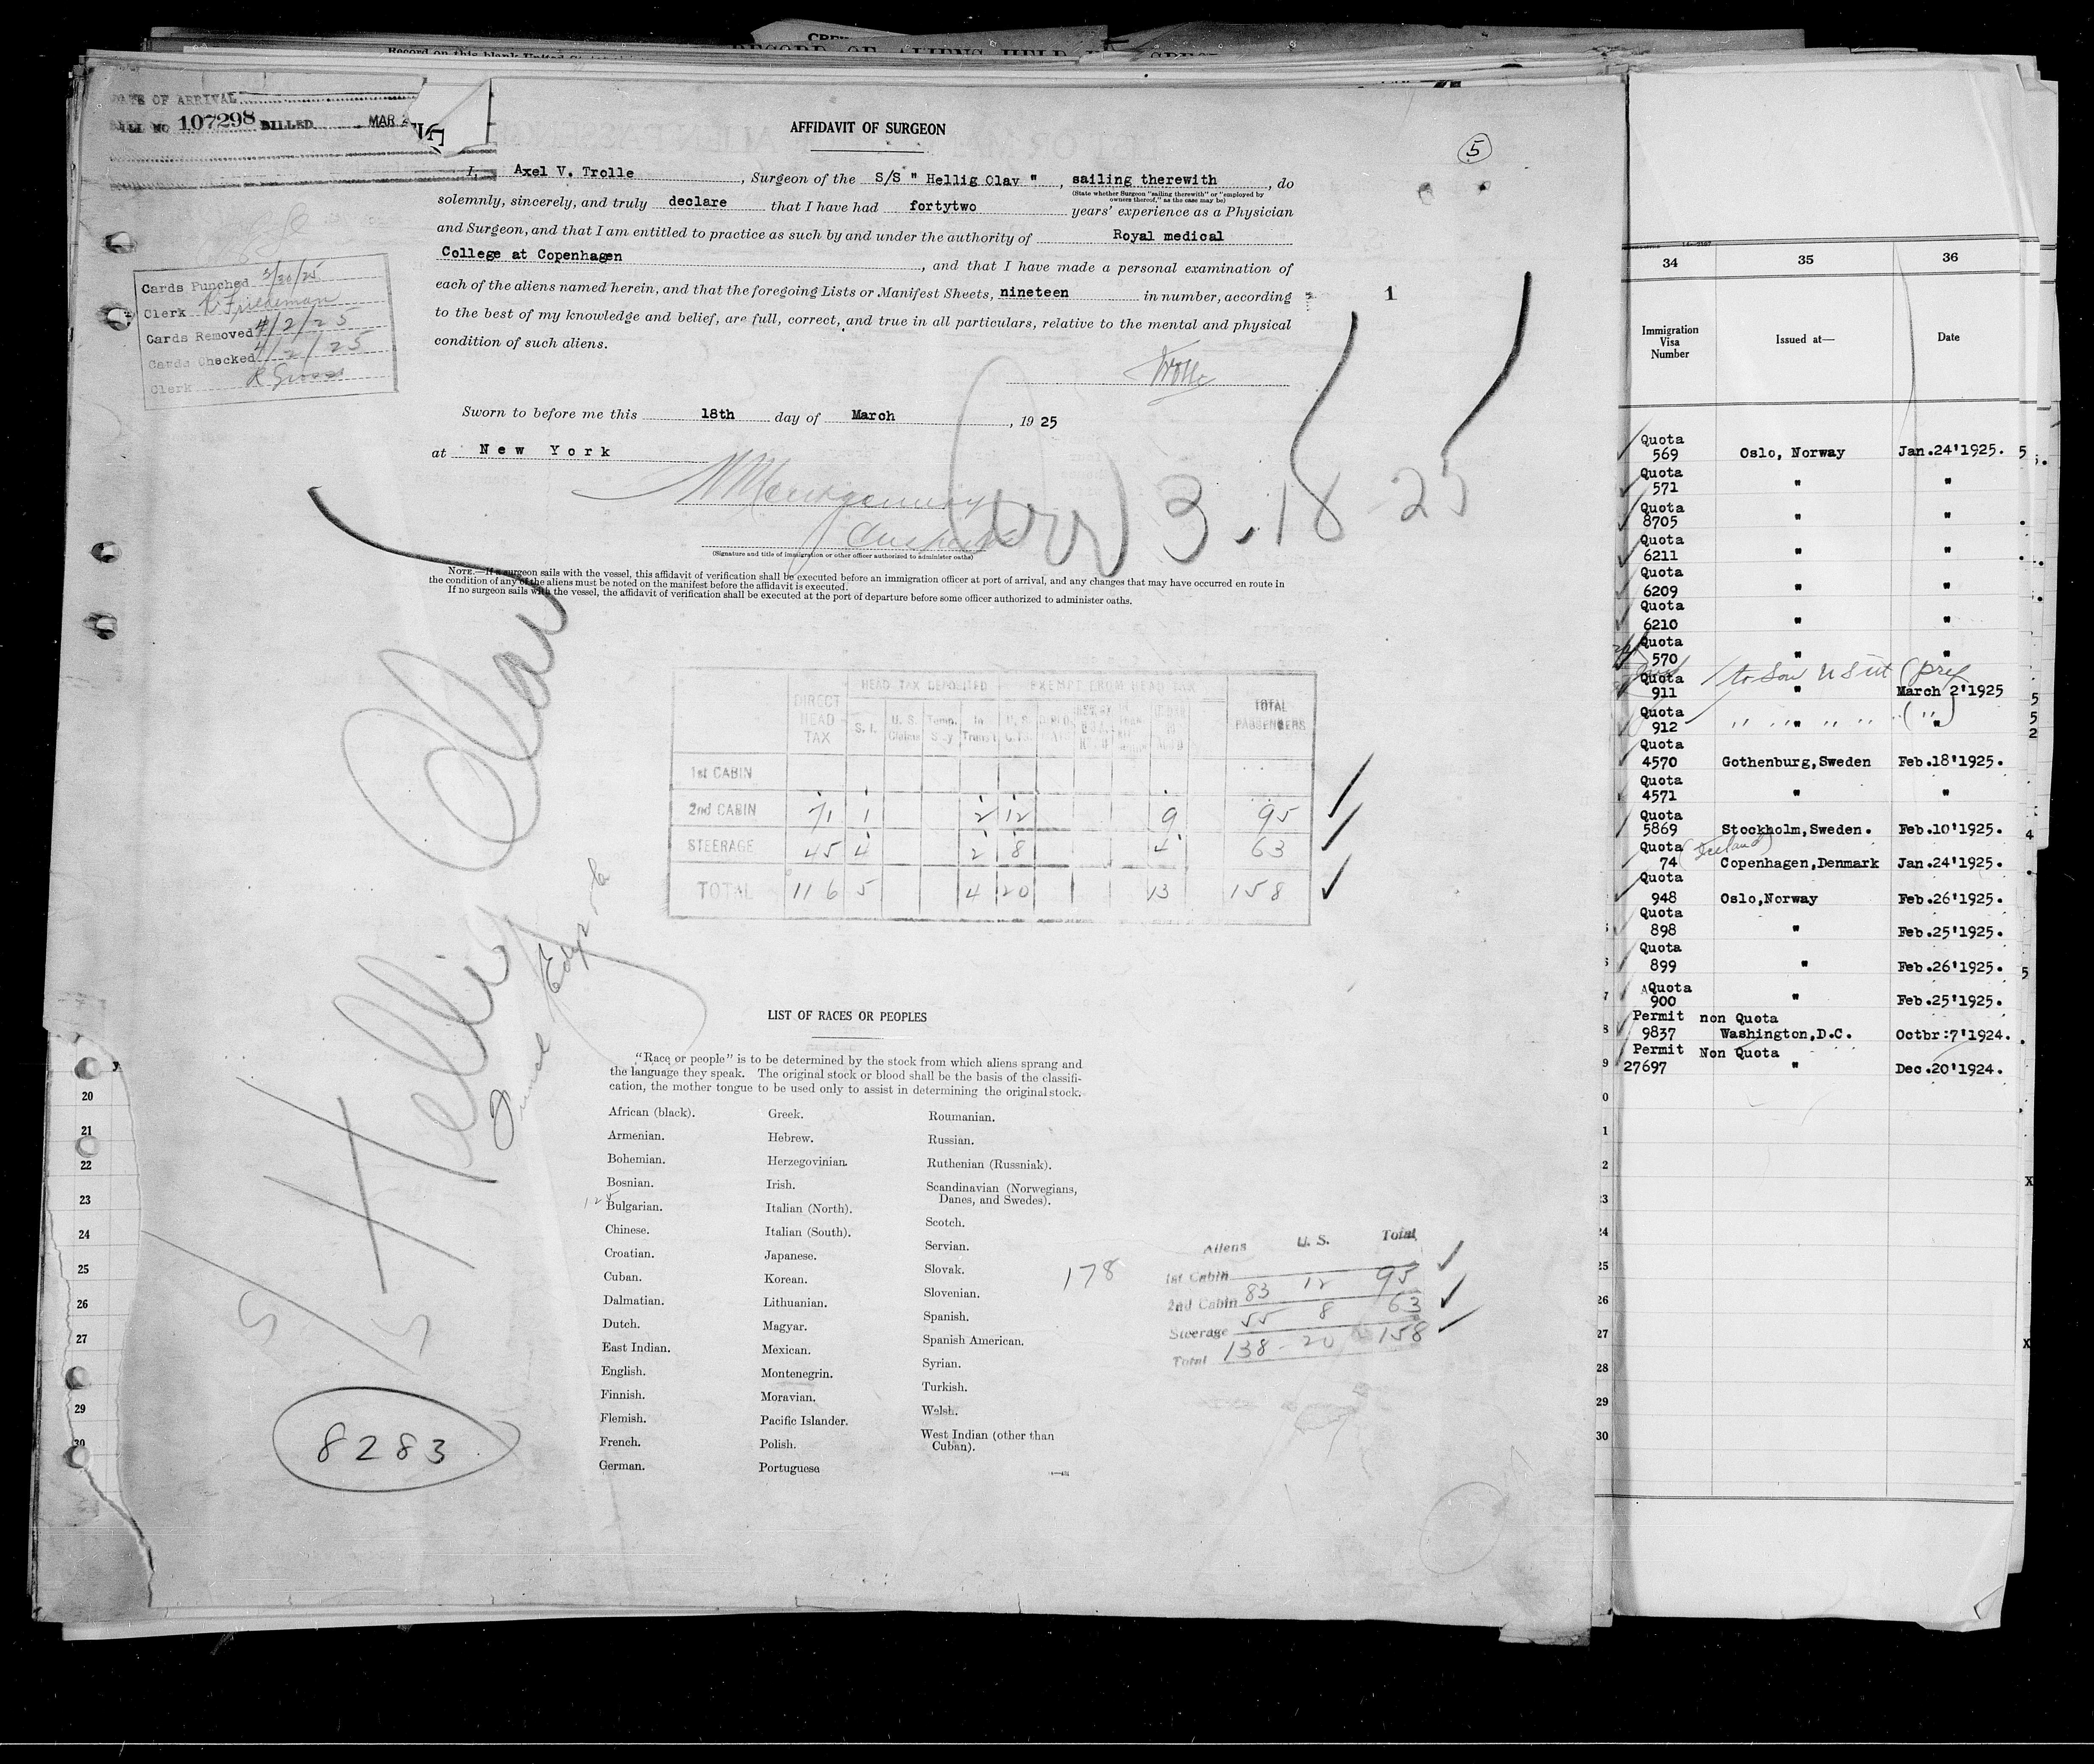 DATE OF ARRIVAL
BILL NO 107298 BILLED MAR 2
AFFIDAVIT OF SURGEON
5
I, Axel V. Trolle, Surgeon of the S/S " Hellig Olav ", sailing therewith, do
(State whether Surgeon "sailing therewith" or "employed by
owners thereof," as the case may be)
solemnly, sincerely, and truly declare that I have had fortytwo years' experience as a Physician
and Surgeon, and that I am entitled to practice as such by and under the authority of Royal medical
College at Copenhagen, and that I have made a personal examination of
each of the aliens named herein, and that the foregoing Lists or Manifest Sheets, nineteen in number, according
to the best of my knowledge and belief, are full, correct, and true in all particulars, relative to the mental and physical
condition of such aliens.
1
Trolle
Cards Punched 3/30/25
Clerk Friedman
Cards Removed 4/2/25
Cards Checked 4/2/25
Clerk R Gross
Sworn to before me this 18th day of March, 19 25
at New York
Montgomery
3.18 25
(Signature and title of immigration or other officer authorized to administer oaths)
NOTE.—If a surgeon sails with the vessel, this affidavit of verification shall be executed before an immigration officer at port of arrival, and any changes that may have occurred en route in
the condition of any of the aliens must be noted on the manifest before the affidavit is executed.
If no surgeon sails with the vessel, the affidavit of verification shall be executed at the port of departure before some officer authorized to administer oaths.
Hellig Olav
HEAD TAX DEPOSITED EXEMPT FROM HEAD TAX
DIRECT HEAD TAX S. I. U. S. Claims Temp. Stay In Transit U. S. TOTAL PASSENGERS
1st CABIN
2nd CABIN 71 1 2 12 9 95
STEERAGE 45 4 2 8 4 63
TOTAL 116 5 4 20 13 158
LIST OF RACES OR PEOPLES
"Race or people" is to be determined by the stock from which aliens sprang and
the language they speak. The original stock or blood shall be the basis of the classifi-
cation, the mother tongue to be used only to assist in determining the original stock.
African (black).
Armenian.
Bohemian.
Bosnian.
Bulgarian.
Chinese.
Croatian.
Cuban.
Dalmatian.
Dutch.
East Indian.
English.
Finnish.
Flemish.
French.
German.
Greek.
Hebrew.
Herzegovinian.
Irish.
Italian (North).
Italian (South).
Japanese.
Korean.
Lithuanian.
Magyar.
Mexican.
Montenegrin.
Moravian.
Pacific Islander.
Polish.
Portuguese
Roumanian.
Russian.
Ruthenian (Russniak).
Scandinavian (Norwegians,
Danes, and Swedes).
Scotch.
Servian.
Slovak.
Slovenian.
Spanish.
Spanish American.
Syrian.
Turkish.
Welsh.
West Indian (other than
Cuban).
178
Aliens U. S. Total
1st Cabin
2nd Cabin 83 12 95
Steerage 55 8 63
Total 138 - 20 158
8283
20
21
22
23
24
25
26
27
28
29
30
34 35 36
Immigration
Visa
Number
Issued at— Date
Quota
569 Oslo, Norway Jan.24'1925. 5
Quota
571 " "
Quota
8705 " "
Quota
6211 " "
Quota
6209 " "
Quota
6210 " "
Quota
570 " "
to son U S cit (pref
Quota
911 " March 2'1925 5
Quota
912 " " 5
2
Quota
4570 Gothenburg,Sweden Feb.18'1925.
Quota
4571 " "
Quota
5869 Stockholm,Sweden. Feb.10'1925. 4
Quota (Iceland)
74 Copenhagen,Denmark Jan.24'1925.
Quota
948 Oslo,Norway Feb.26'1925.
Quota
898 " Feb.25'1925.
Quota
899 " Feb.26'1925. 5
Quota
900 " Feb.25'1925.
Permit non Quota
9837 Washington,D.C. Octbr:7'1924.
Permit Non Quota
27697 " Dec.20'1924.
24
25
26
27
28
29
30